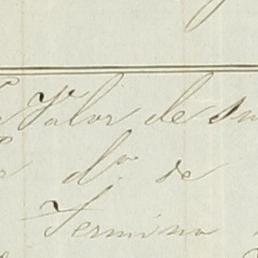 Valor de su
d.º de
Termino